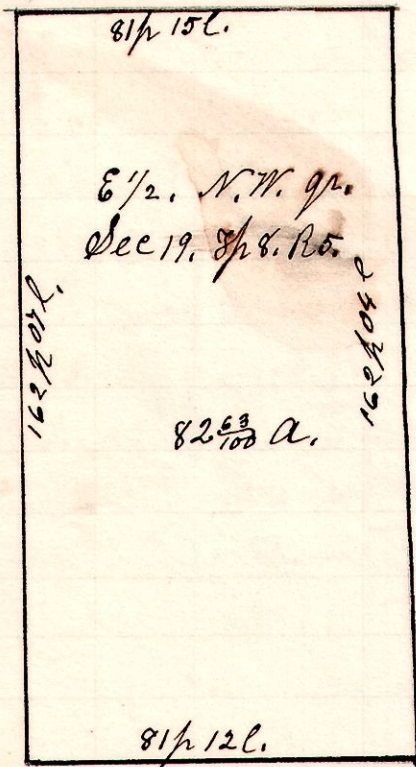 81p 15l.
E 1/2. N.W. qr.
Sec 19. Tp 8. R 5.
162p 07l.
162p 04l
82 63/100 a.
81p 12l.